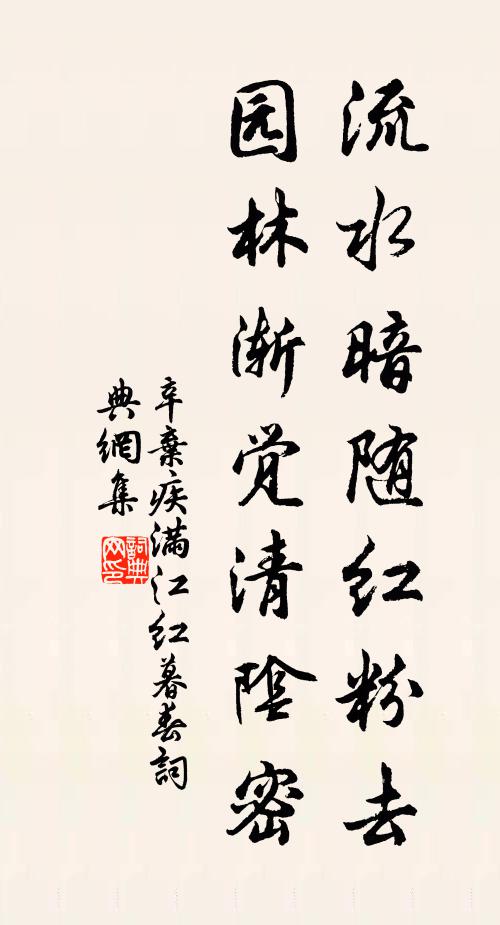 流水暗随红粉去
园林渐觉清陰密
辛棄疾满江红暮春詞
典網集
詞典
网印